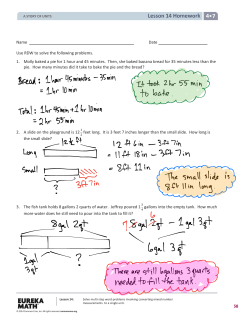 A STORY OF UNITS
Lesson 14 Homework 4•7
Name Date
Use RDW to solve the following problems.
1. Molly baked a pie for 1 hour and 45 minutes. Then, she baked banana bread for 35 minutes less than the
pie. How many minutes did it take to bake the pie and the bread?
Bread: 1 hour 45 minutes - 35 min
= 1 hr 10 min
Total: 1 hr 45 min + 1 hr 10 min
= 2 hr 55 min
It took 2 hr 55 min
to bake
2. A slide on the playground is 12 1/2 feet long. It is 3 feet 7 inches longer than the small slide. How long is
the small slide?
12 1/2 ft
Long
Small
?
3 ft 7 in
12 ft 6 in - 3 ft 7 in
= 11 ft 18 in - 3 ft 7 in
= 8 ft 11 in
The small slide is
8 ft 11 in long
3. The fish tank holds 8 gallons 2 quarts of water. Jeffrey poured 1 3/4 gallons into the empty tank. How much
more water does he still need to pour into the tank to fill it?
8 gal 2 qt
?
8 gal 2 qt - 1 gal 3 qt
6 gal 3 qt
There are still 6 gallons 3 quarts
needed to fill the tank.
EUREKA
MATH
Lesson 14:
58